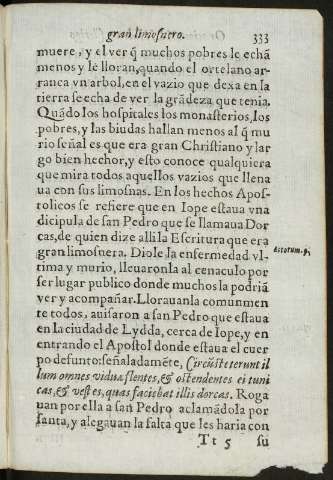 gran limosnero. 333
muere, y el ver q̃ muchos pobres le echã
menos y le lloran, quando el ortelano ar-
ranca vn arbol, en el vazio que dexa en la
tierra se echa de ver la grãdeza que tenia.
Quãdo los hospitales los monasterios, los
pobres, y las biudas hallan menos al q̃ mu
rio señal es que era gran Christiano y lar
go bien hechor, y esto conoce qualquiera
que mira todos aquellos vazios que llena
ua con sus limosnas. En los hechos Apos-
tolicos se refiere que en Iope estaua vna
dicipula de san Pedro que se llamaua Dor
cas, de quien dize alli la Escritura que era
gran limosnera. Diole la enfermedad vl-
tima y murio, lleuaronla al cenaculo por
ser lugar publico donde muchos la podriã
ver y acompañar. Llorauanla comunmen
te todos, auisaron a san Pedro que estaua
en la ciudad de Lydda, cerca de Iope, y en
entrando el Apostol donde estaua el cuer
po defunto: señaladamẽte, Circũsteterunt il
lum omnes viduæ flentes, & ostendentes ei tuni
cas, & vestes, quas faciebat illis dorcas. Roga
uan por ella a san Pedro aclamãdola por
santa, y alegauan la falta que les haria con
Tt 5 su
Actorum. 9.